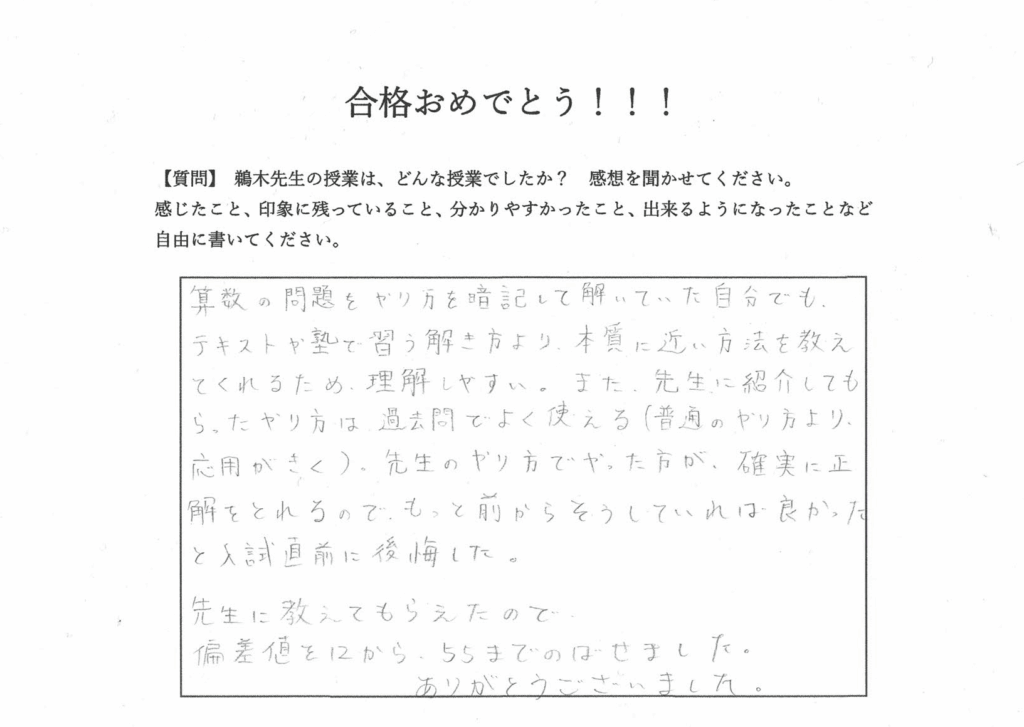 合格おめでとう！！！
【質問】 鵜木先生の授業は、どんな授業でしたか？ 感想を聞かせてください。
感じたこと、印象に残っていること、分かりやすかったこと、出来るようになったことなど
自由に書いてください。
算数の問題をやり方を暗記して解いていた自分でも、
テキストや塾で習う解き方より、本質に近い方法を教え
てくれるため、理解しやすい。また、先生に紹介しても
らったやり方は、過去問でよく使える(普通のやり方より、
応用がきく)。先生のやり方でやった方が、確実に正
解をとれるので、もっと前からそうしていれば良かった
と入試直前に後悔した。
先生に教えてもらえたので、
偏差値を12から、55までのばせました。
ありがとうございました。